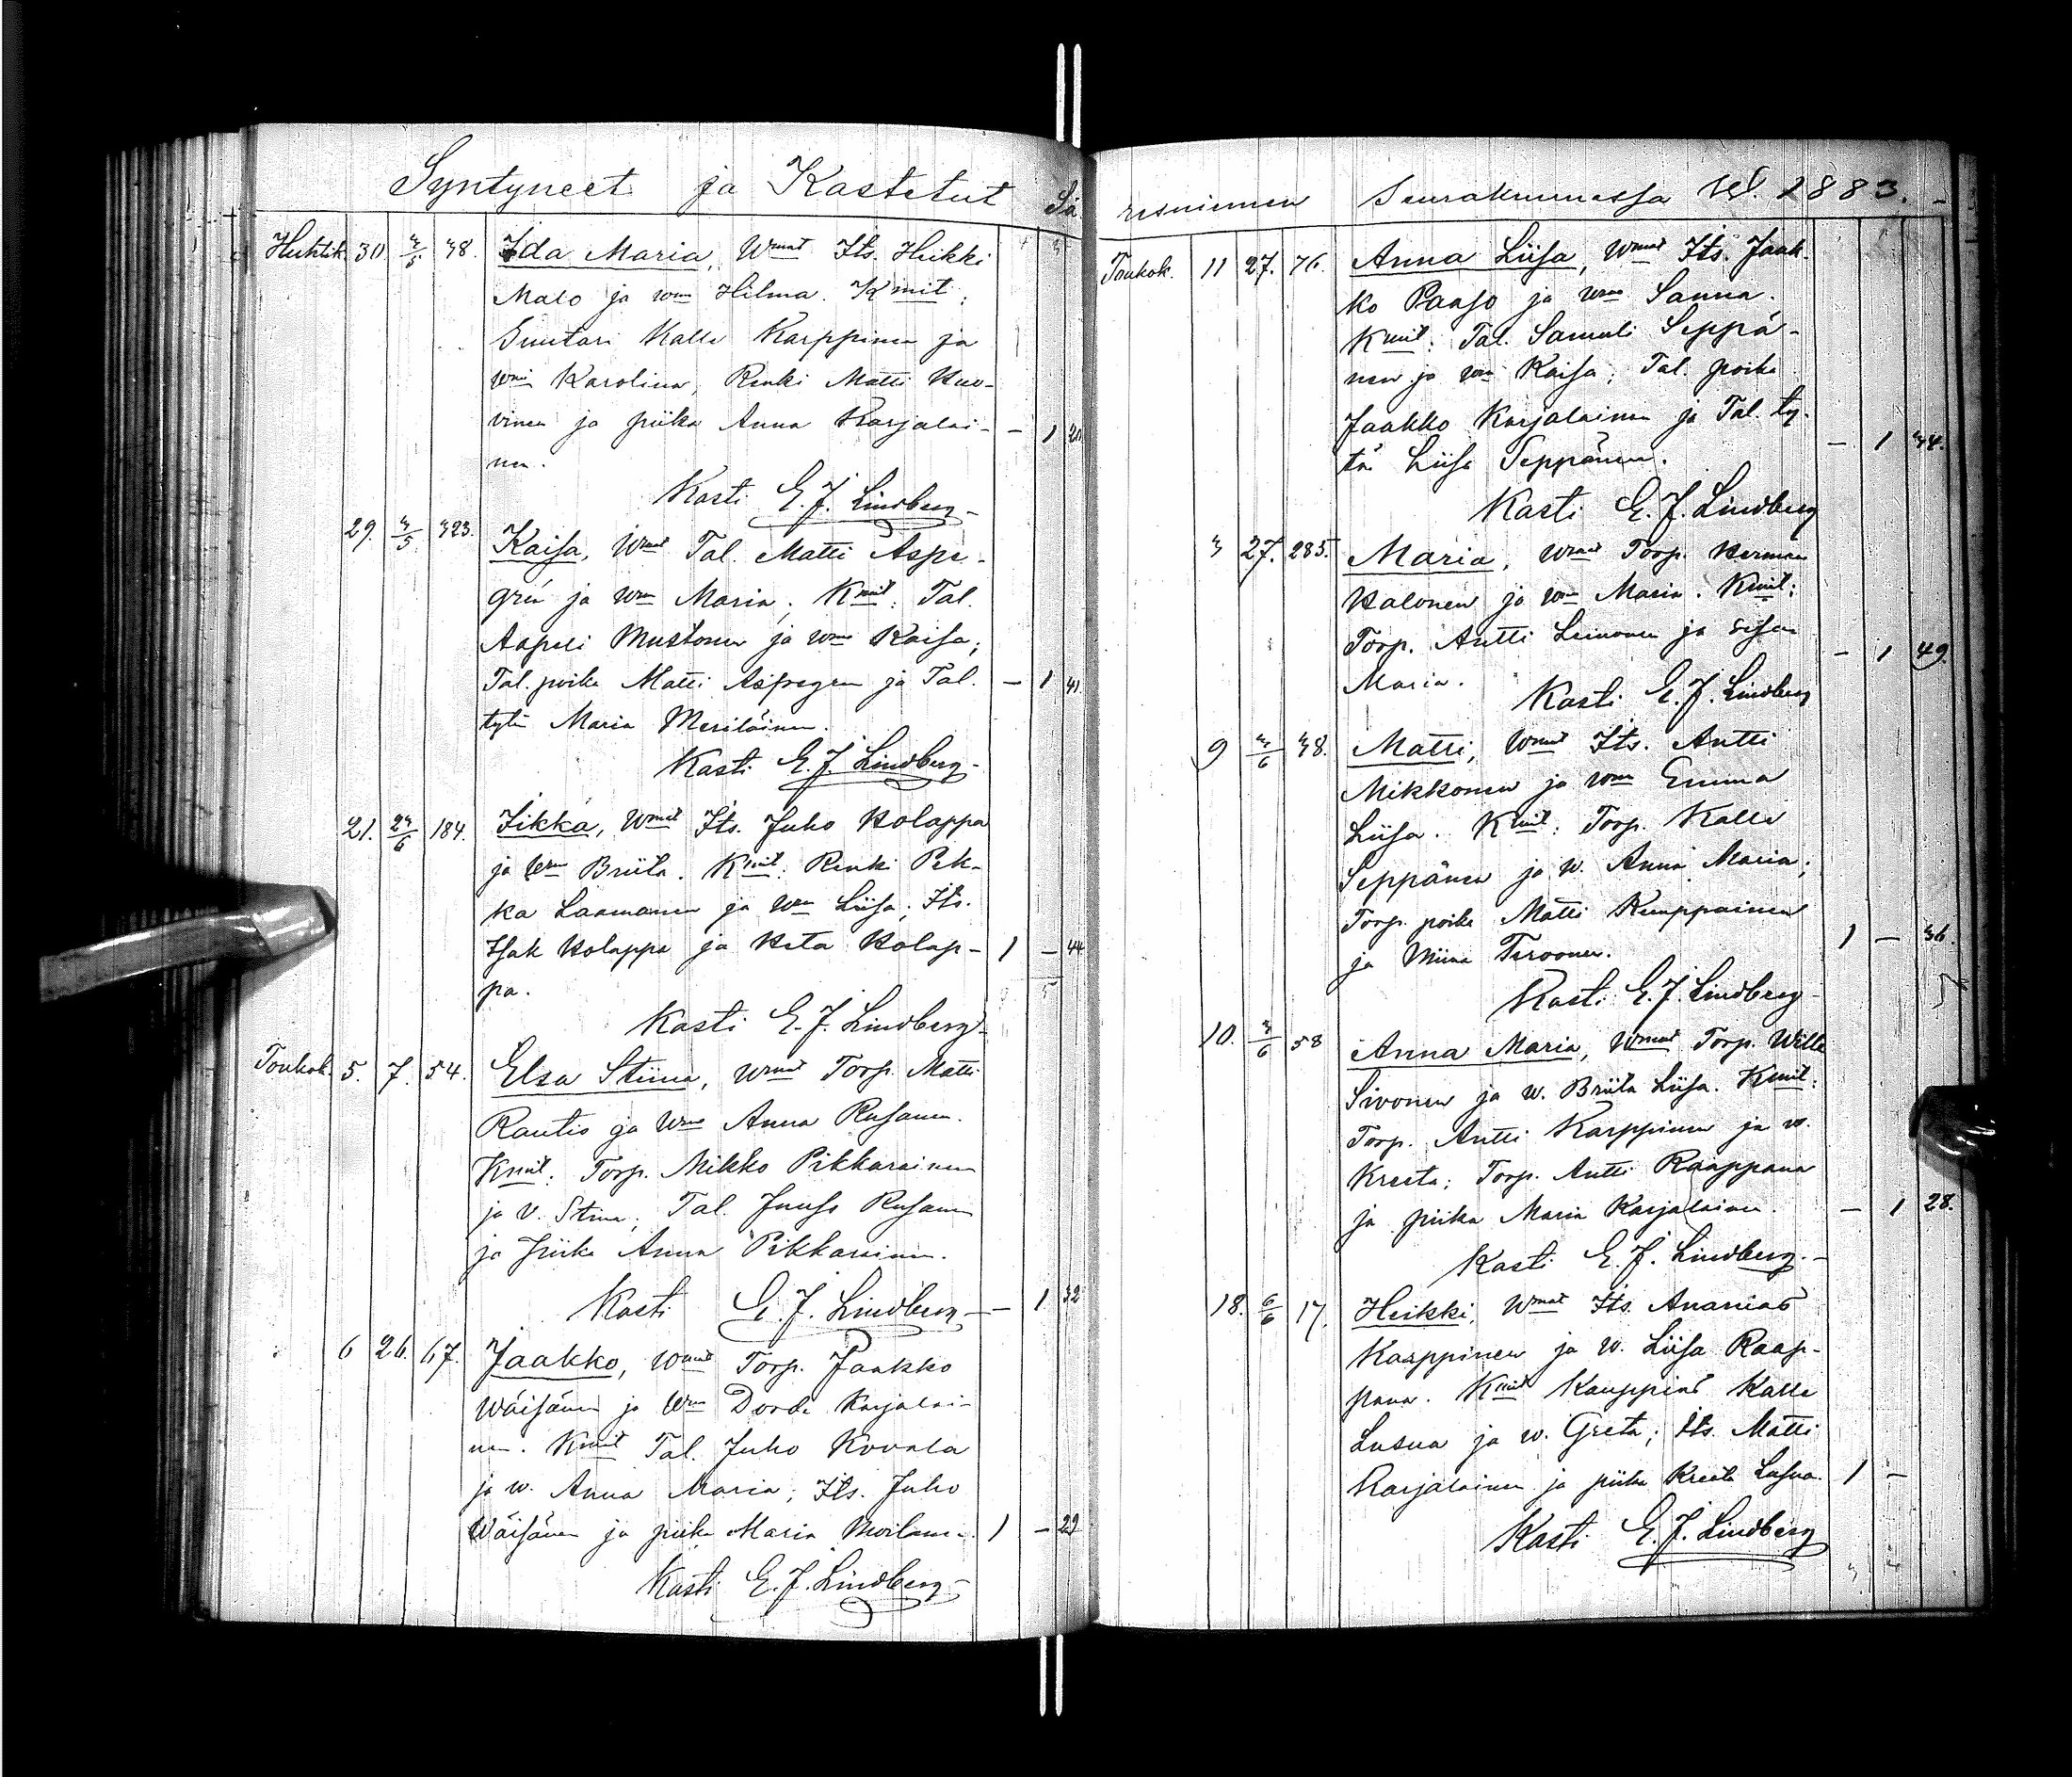 Syntyneet ja Kastetut Sä
Huhtik. 30 3/5 38. Ida Maria, Wmat Its. Heikki
Malo ja wm Hilma. Kmit:
Suutari Kalle Karppinen ja
wm Karolina, Renki Matti Huo-
vinen ja piika Anna Karjalai- - 1 20
nen.
Kasti E. J. Lindberg
29. 3/5 323. Kaisa, Wmat Tal. Matti Aspe-
grén ja wm Maria. Kmit: Tal.
Aapeli Mustonen ja wm Kaisa;
Tal. poika Matti Aspegren ja Tal. - 1 41
tytä Maria Meriläinen.
Kasti E. J. Lindberg
21. 23/6 184. Iikka, Wmat Its. Juho Kolappa
ja wm Briita. Kmit: Renki Pek-
ka Laamanen ja wm Liisa; Its.
Isak Holappa ja Reta Holap- 1 - 44
pa.
Kasti E. J. Lindberg
Toukok. 5. 7. 54. Elsa Stiina, Wmat Torp. Matti
Rautio ja Wm Anna Rusanen.
Kmit: Torp. Mikko Pikkarainen
ja v. Stina; Tal. Juuso Rusanen
ja piika Anna Pikkarainen.
Kasti E. J. Lindberg - 1 32
6 26. 67. Jaakko, Wmat Torp. Jaakko
Wäisänen ja Wm Dorde Karjalai-
nen. Kmit Tal. Juho Kovala
ja w. Anna Maria; Its. Juho
Wäisänen ja piika Maria Moilanen. 1 - 29
Kasti E. J. Lindberg
resniemen Seurakunnassa w. 1883.
Toukok. 11 27. 76. Anna Liisa, Wmat Its. Jaak-
ko Paaso ja wm Sanna.
Kmit: Tal. Samuli Seppä-
nen ja wm Kaisa; Tal. poika
Jaakko Karjalainen ja Tal. ty-
tä Liisa Seppänen. - 1 34.
Kasti E. J. Lindberg
3 27. 285. Maria, Wmat Torp. Herman
Halonen ja wm Maria. Kmit:
Torp. Antti Leinonen ja sisar - 1 49.
Maria.
Kasti E. J. Lindberg
9 3/6 38. Matti, Wmat Its. Antti
Mikkonen ja wm Emma
Liisa. Kmit: Torp. Kalle
Seppänen ja w. Anna Maria;
Torp. poika Matti Kemppainen
ja Miina Tervonen. 1 - 36.
Kasti E. J. Lindberg
10. 3/6 58 Anna Maria, Wmat Torp. Wille
Sivonen ja w. Briita Liisa. Kmit:
Torp. Antti Karppinen ja w.
Kreeta; Torp. Antti Raappana
ja piika Maria Karjalainen. - 1 28.
Kasti E. J. Lindberg
18. 6/6 17. Heikki, Wmat Its. Ananias
Karppinen ja w. Liisa Raap-
pana. Kmit Kauppias Kalle
Lusua ja w. Greta; Its. Matti
Karjalainen ja piika Kreeta Lusua. 1 -
Kasti E. J. Lindberg